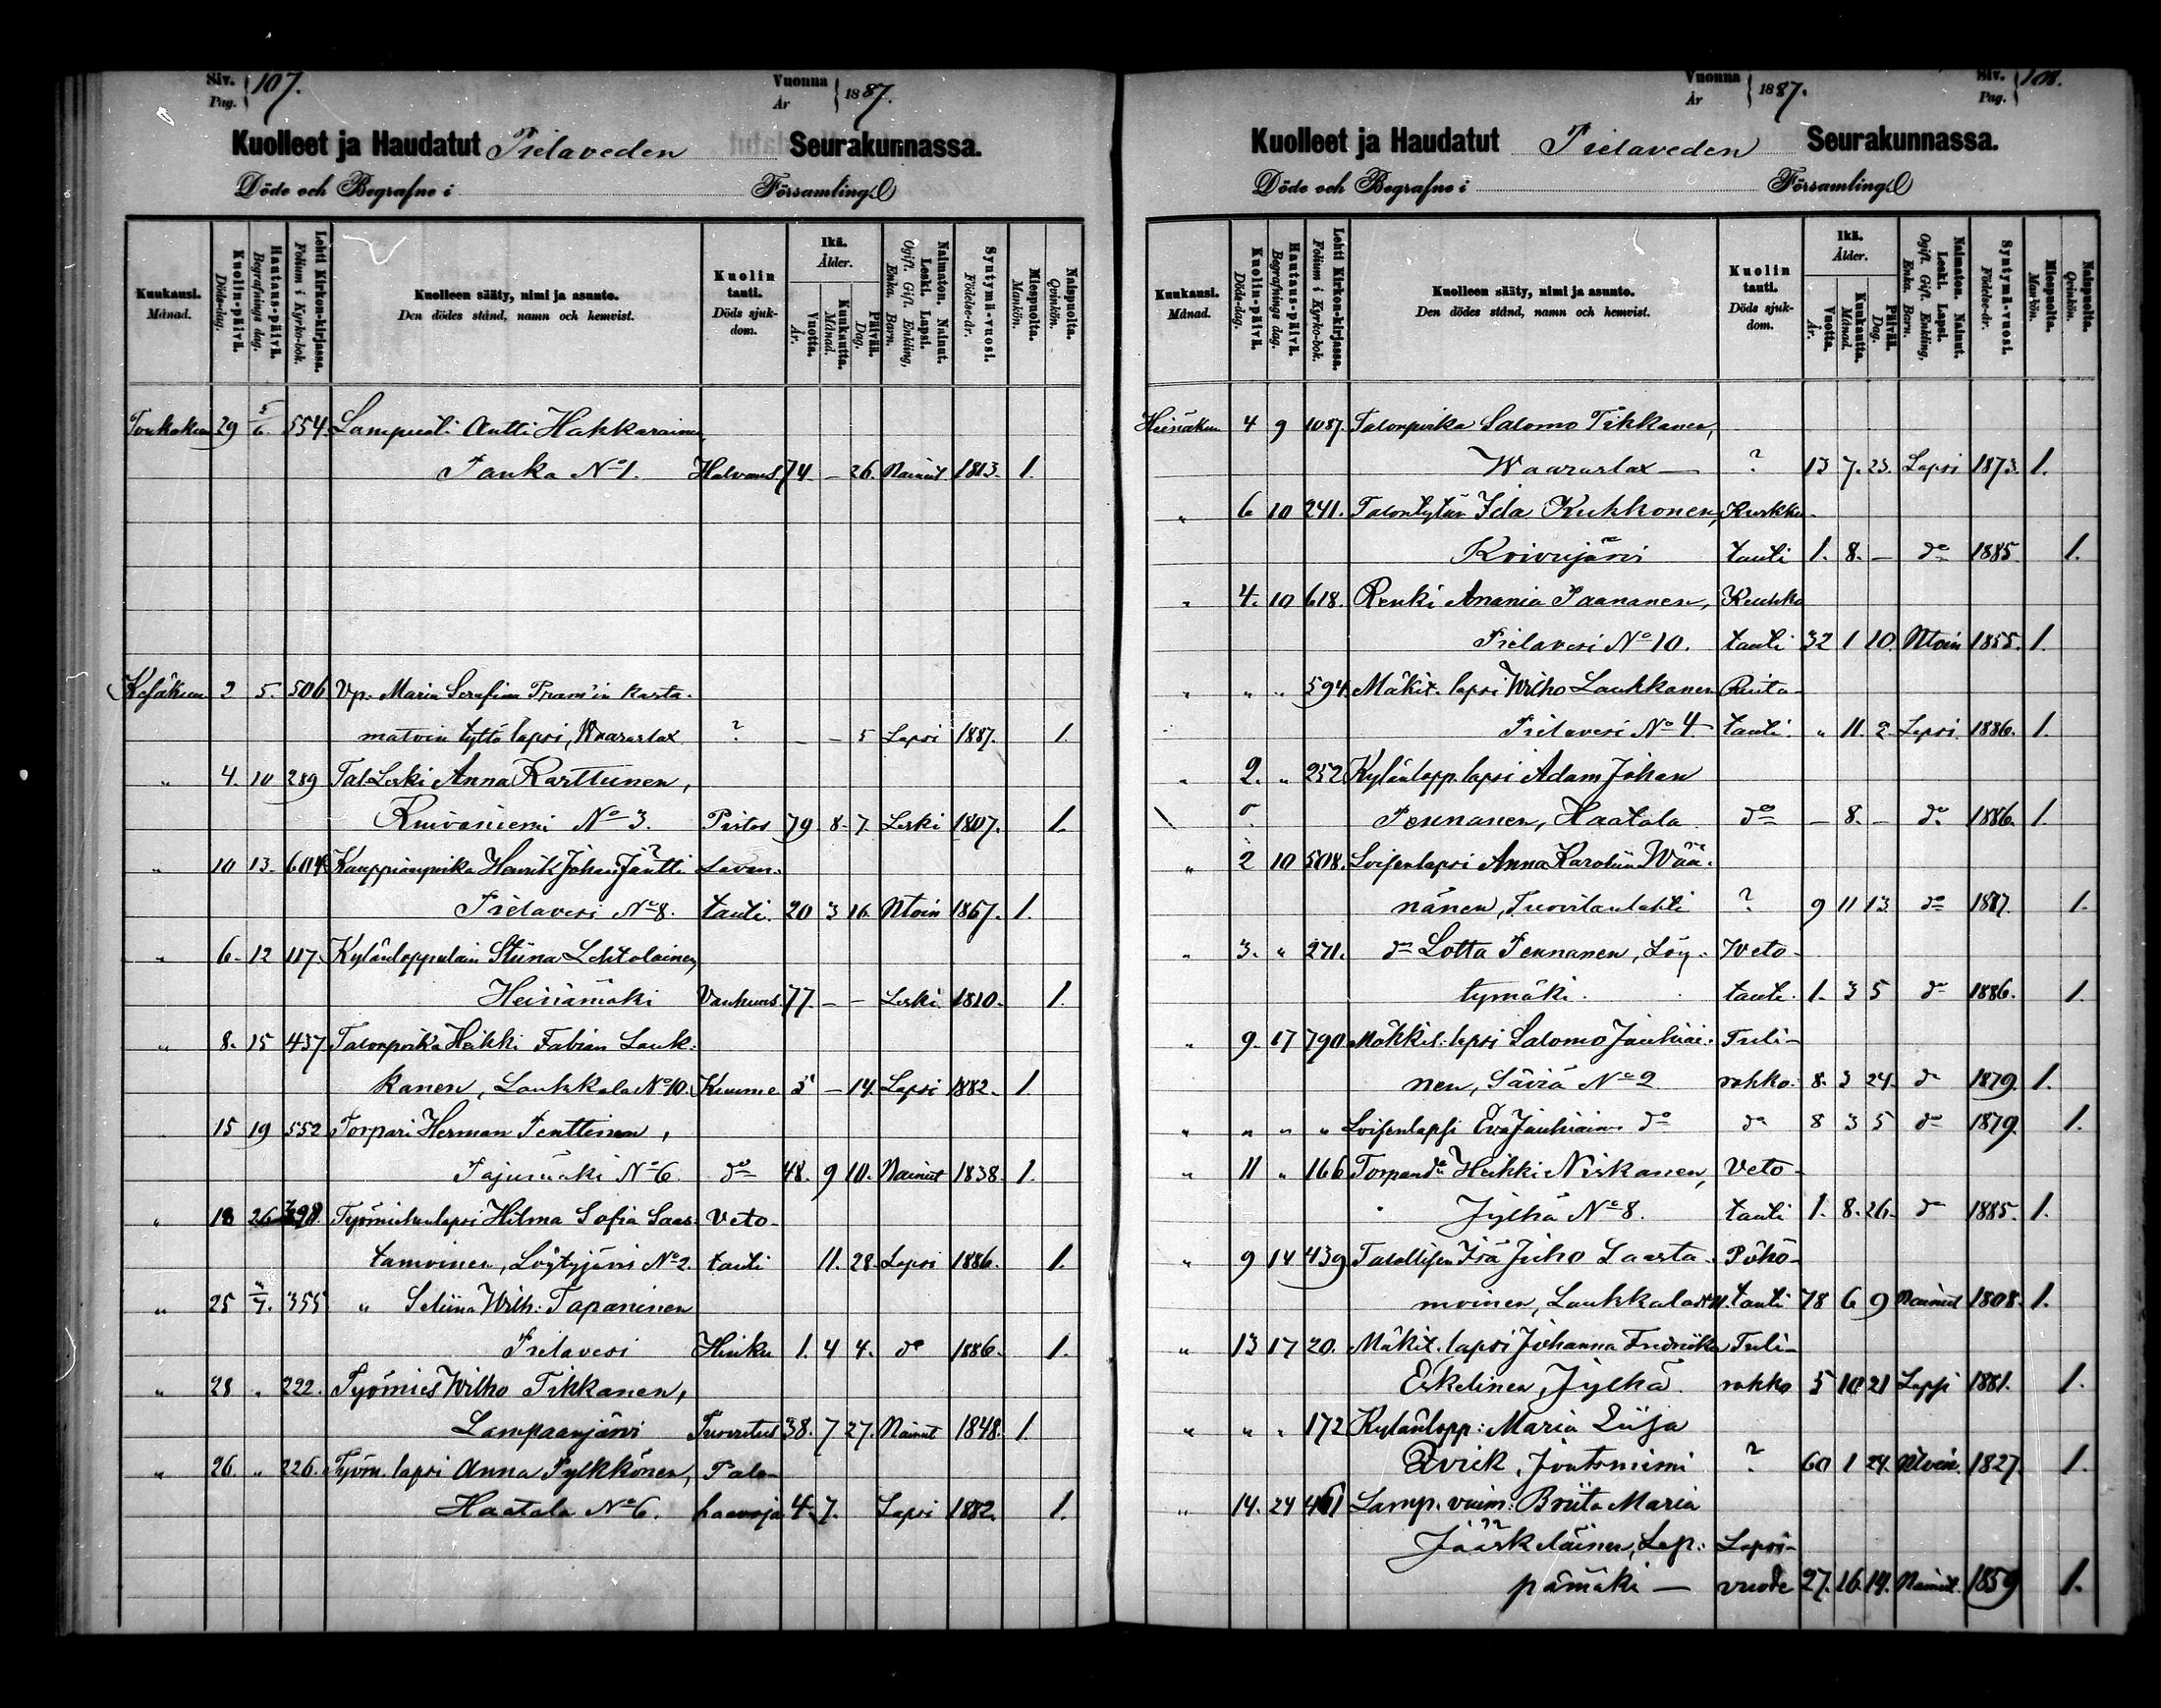 Siv. 107.
Pag.
Vuonna 1887.
År
Kuolleet ja Haudatut Pielaveden Seurakunnassa.
Döde och Begrafne i Församling.
Kuukausi. Månad.
Kuolin-päivä. Döds-dag.
Hautaus-päivä. Begrafnings dag.
Lehti Kirkon-kirjassa. Folium i Kyrko-bok.
Kuolleen sääty, nimi ja asunto.
Den dödes stånd, namn och hemvist.
Kuolin tauti. Döds sjukdom.
Ikä. Ålder.
Vuotta. År.
Kuukautta. Månad.
Päivää. Dag.
Naimaton. Nainut. Leski. Lapsi. Ogift. Gift. Enkling, Enka. Barn.
Syntymä-vuosi. Födelse-år.
Miespuolta. Mankön.
Naispuolta. Qvinkön.
Toukokuu 29 5/6. 554. Lampuoti Antti Hakkarainen,
Panka No 1. Halvaus 74. — 26. Nainut 1813. 1.
Kesäkuu 2 5. 506 Vp. Maria Serafina Pram'in kasta-
matoin tyttö lapsi, Waaraslax ? — — 5 Lapsi 1887. 1.
" 4. 10 289 Tal. Leski Anna Karttunen,
Kuivaniemi No 3. Pistos 79 8. 7. Leski 1807. 1.
" 10 13. 604 Kauppianpoika Henrik Johan Jäntti Lavan-
Pielavesi No 8. tauti. 20 3 16. Ntoin 1867. 1.
" 6. 12 117. Kylänloppulain Stiina Lehtolainen,
Heinämäki Vanhuus. 77. — — Leski 1810. 1.
" 8. 15 437 Talonpoika Heikki Fabian Lauk-
kanen, Laukkala No 10. Kuume 5 — 14. Lapsi 1882. 1.
15 19 552 Torpari Herman Penttinen,
Pajumäki No 6. do 48. 9 10. Nainut 1838. 1.
" 18 26 398. Työmiehenlapsi Hilma Sofia Saas- Veto-
tamoinen, Löytyjärvi No 2. tauti 11. 28. Lapsi 1886. 1.
" 25 355 " Seliina Wilh: Tapaninen
Pielavesi Hinku 1. 4 4. do 1886. 1.
" 28 " 222. Työmies Wilho Tikkanen,
Lampaanjärvi Turvotus 38. 7 27. Nainut 1848. 1.
" 26. " 226. Työm. lapsi Anna Pylkkönen, Palo-
Haatala No 6. haavoja 4. 7. Lapsi 1882. 1.
Vuonna 1887.
År
Siv. 108.
Pag.
Kuolleet ja Haudatut Pielaveden Seurakunnassa.
Döde och Begrafne i Församling.
Kuukausi. Månad.
Kuolin-päivä. Döds-dag.
Hautaus-päivä. Begrafnings dag.
Lehti Kirkon-kirjassa. Folium i Kyrko-bok.
Kuolleen sääty, nimi ja asunto.
Den dödes stånd, namn och hemvist.
Kuolin tauti. Döds sjukdom.
Ikä. Ålder.
Vuotta. År.
Kuukautta. Månad.
Päivää. Dag.
Naimaton. Nainut. Leski. Lapsi. Ogift. Gift. Enkling, Enka. Barn.
Syntymä-vuosi. Födelse-år.
Miespuolta. Mankön.
Naispuolta. Qvinkön.
Heinäkuu 4 9 1087. Talonpoika Salomo Tikkanen,
Waaraslax — ? 13 7. 23. Lapsi 1873. 1.
" 6 10 241. Talontytär Ida Kukkonen, Kurkku-
Koivujärvi tauti 1. 8. — do 1885. 1.
" 4. 10 618. Renki Anania Paananen, Keuhko
Pielavesi No 10. tauti 32 1 10. Ntoin 1855. 1.
" " " 594. Mäkit. lapsi Wilho Laukkanen Riita-
Pielavesi No 4 tauti. " 11. 2. Lapsi 1886. 1.
" 2. " 252 Kylänlopp. lapsi Adam Johan
Pennanen, Haatala do — 8. — do 1886. 1.
" 2 10 508. Loisenlapsi Anna Karoliina Wää-
nänen, Tuovilanlahti ? 9 11 13. do 1887. 1.
" 3. " 271. do Lotta Pennanen, Löy- Veto-
tymäki. tauti. 1. 3 5 do 1886. 1.
" 9. 17 790 Mökkil. lapsi Salomo Jauhiai- Tuli-
nen, Säviä No 2 rokko. 8. 3 24. do 1879. 1.
" " " " Loisenlapsi Eva Jauhiainen do do 8 3 5 do 1879. 1.
" 11 " 166 Torpan do Heikki Niskanen, Veto-
Jylhä No 8. tauti 1. 8. 26. do 1885. 1.
" 9 14 439 Talollisen Isä Juho Saasta- Pöhö-
moinen, Laukkala No 11. tauti 78 6 9 Nainut 1808. 1.
" 13 17 20. Mäkit. lapsi Johanna Fredriika Tuli-
Eskelinen, Jylhä. rokko 5 10 21 Lapsi 1881. 1.
" " " 172 Kylänlopp: Maria Liisa
Qvick, Joutsniemi ? 60 1 24. Ntoin. 1827. 1.
" 14. 24 461 Lamp. vaim: Briita Maria
Jääskeläinen, Lep- Lapsi-
pämäki — vuode 27. 16. 14. Nainut. 1859 1.